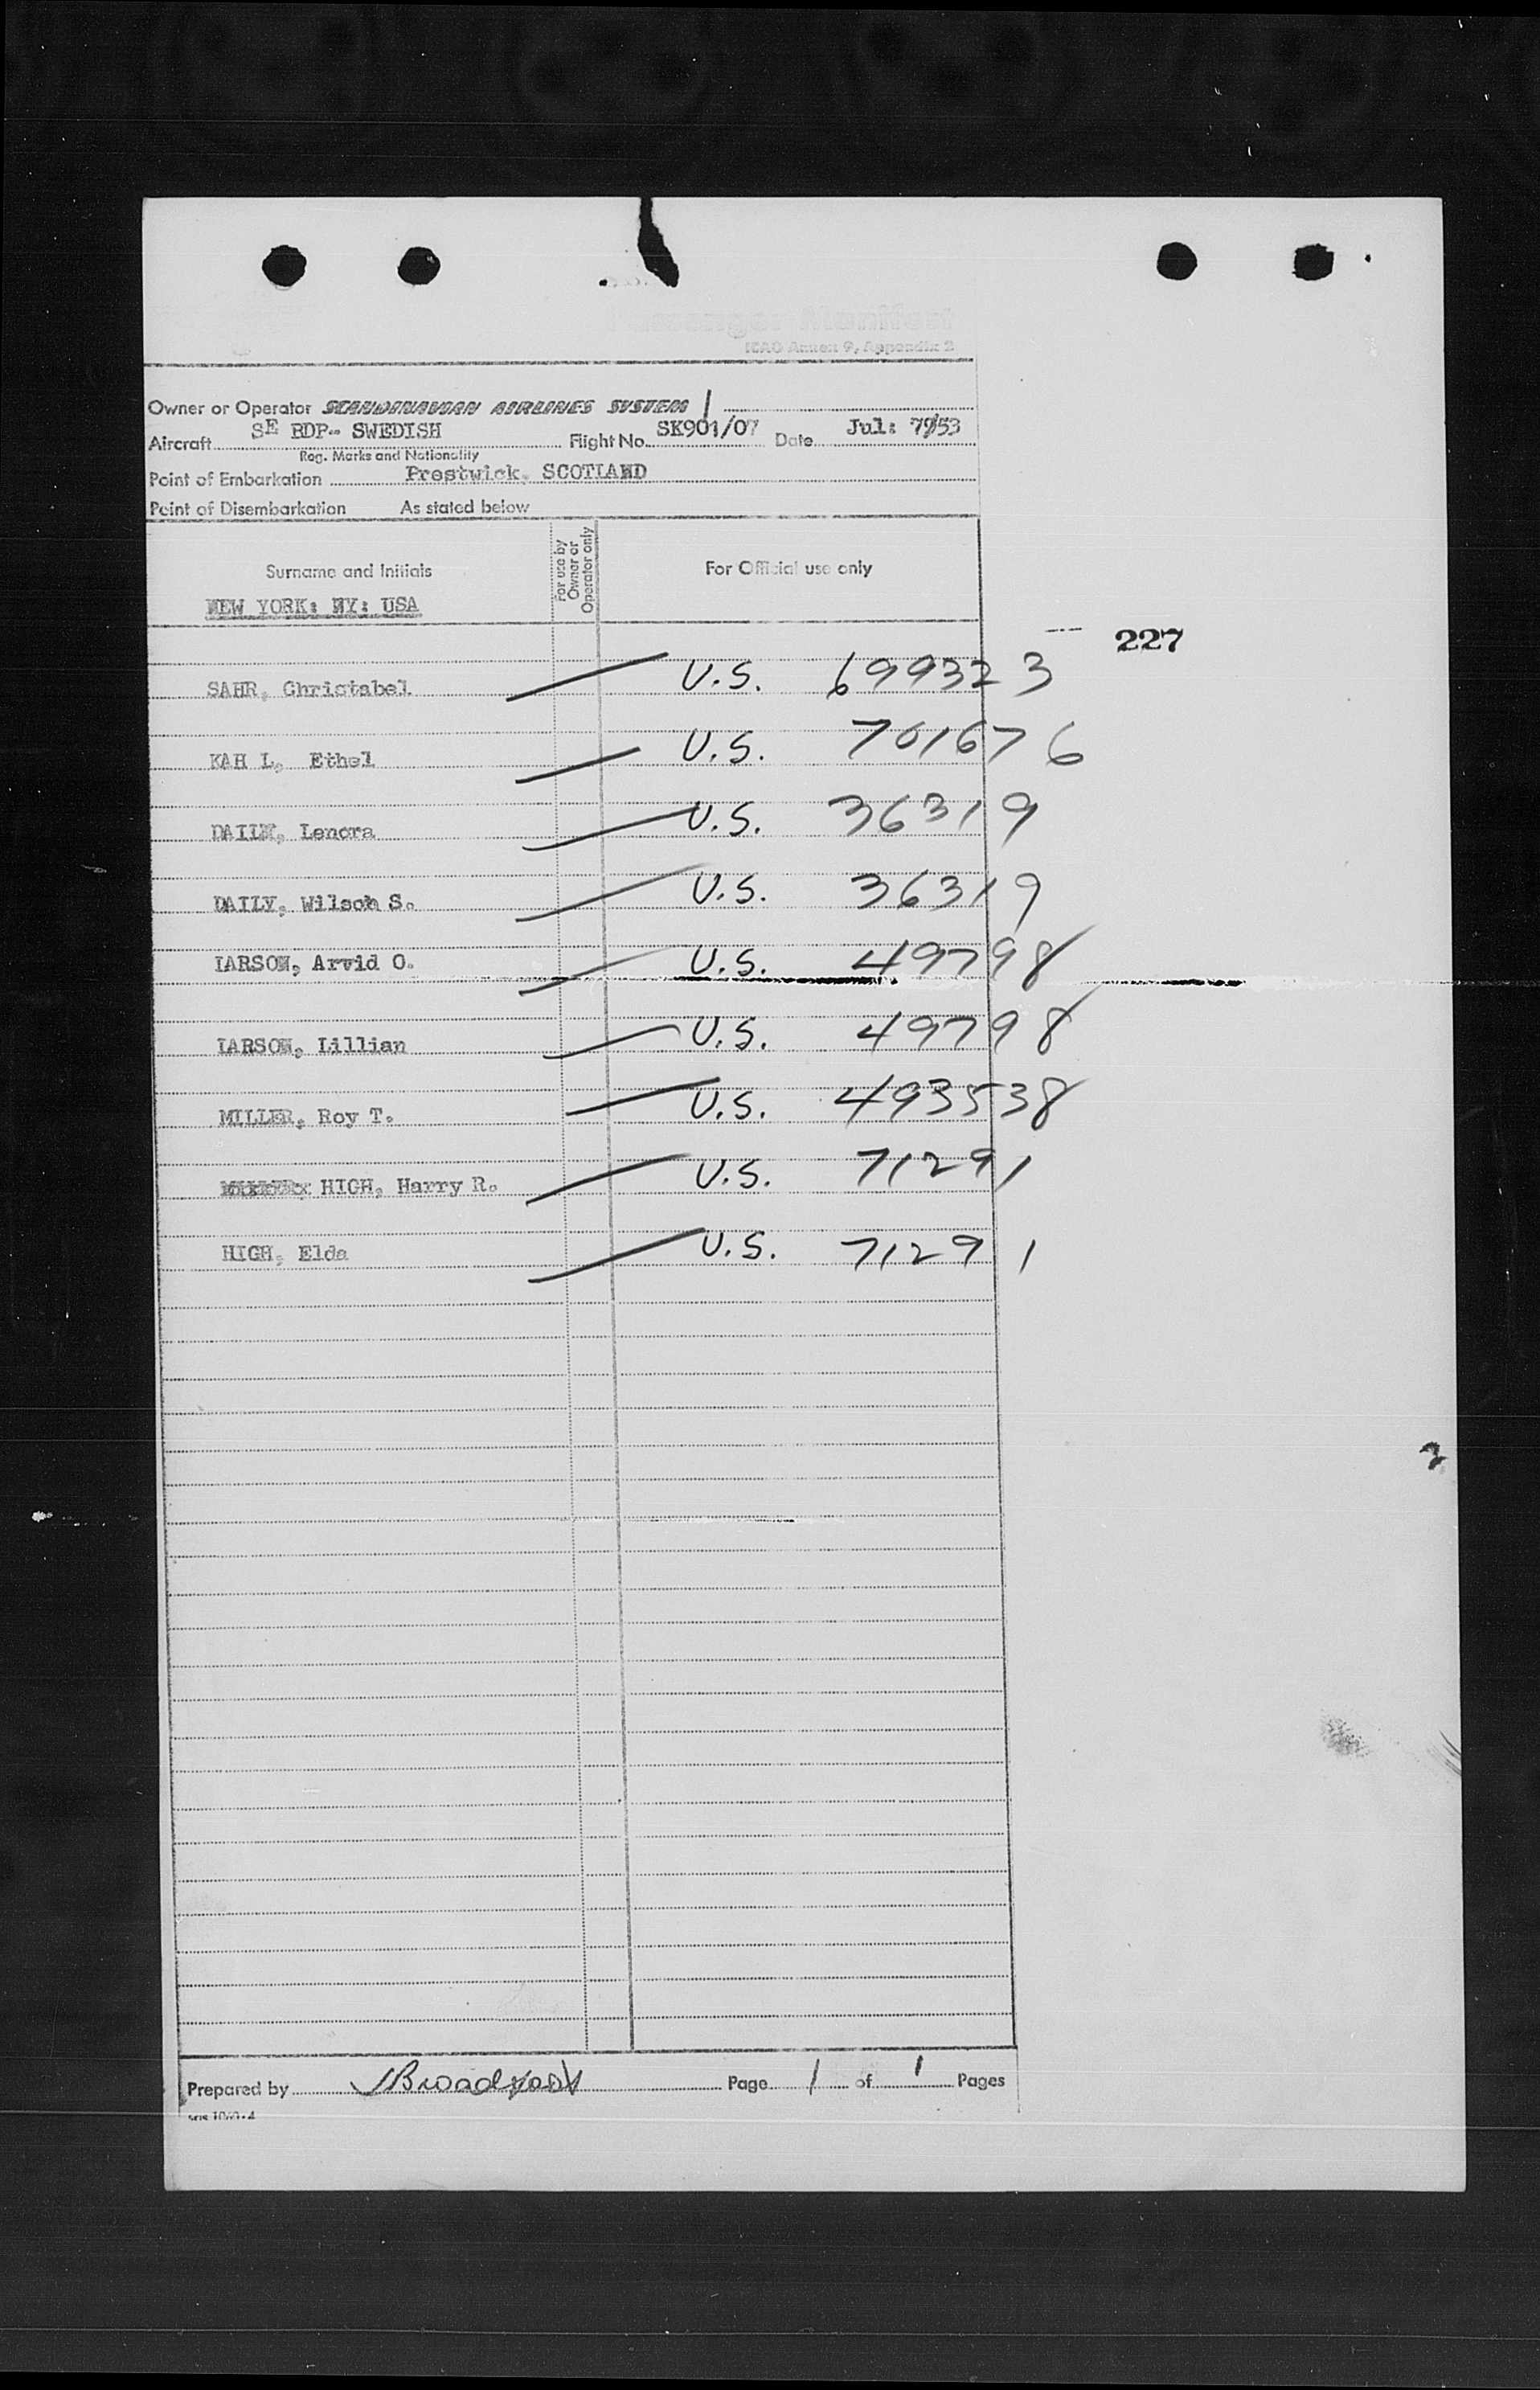 Passenger Manifest
ICAO Annex 9, Appendix 2
Owner or Operator SCANDINAVIAN AIRLINES SYSTEM
Aircraft SE BDP- SWEDISH Flight No. SK901/07 Date Jul: 7/53
Reg. Marks and Nationality
Point of Embarkation Prestwick, SCOTLAND
Point of Disembarkation As stated below
Surname and Initials For use by Owner or Operator only For Official use only
NEW YORK: NY: USA
227
SAHR, Christabel U.S. 699323
KAH L, Ethel U.S. 701676
DAILY, Lenora U.S. 36319
DAILY, Wilson S. U.S. 36319
LARSON, Arvid O. U.S. 49798
LARSON, Lillian U.S. 49798
MILLER, Roy T. U.S. 493538
HIGH, Harry R. U.S. 71291
HIGH, Elda U.S. 71291
2
Prepared by Page 1 of 1 Pages